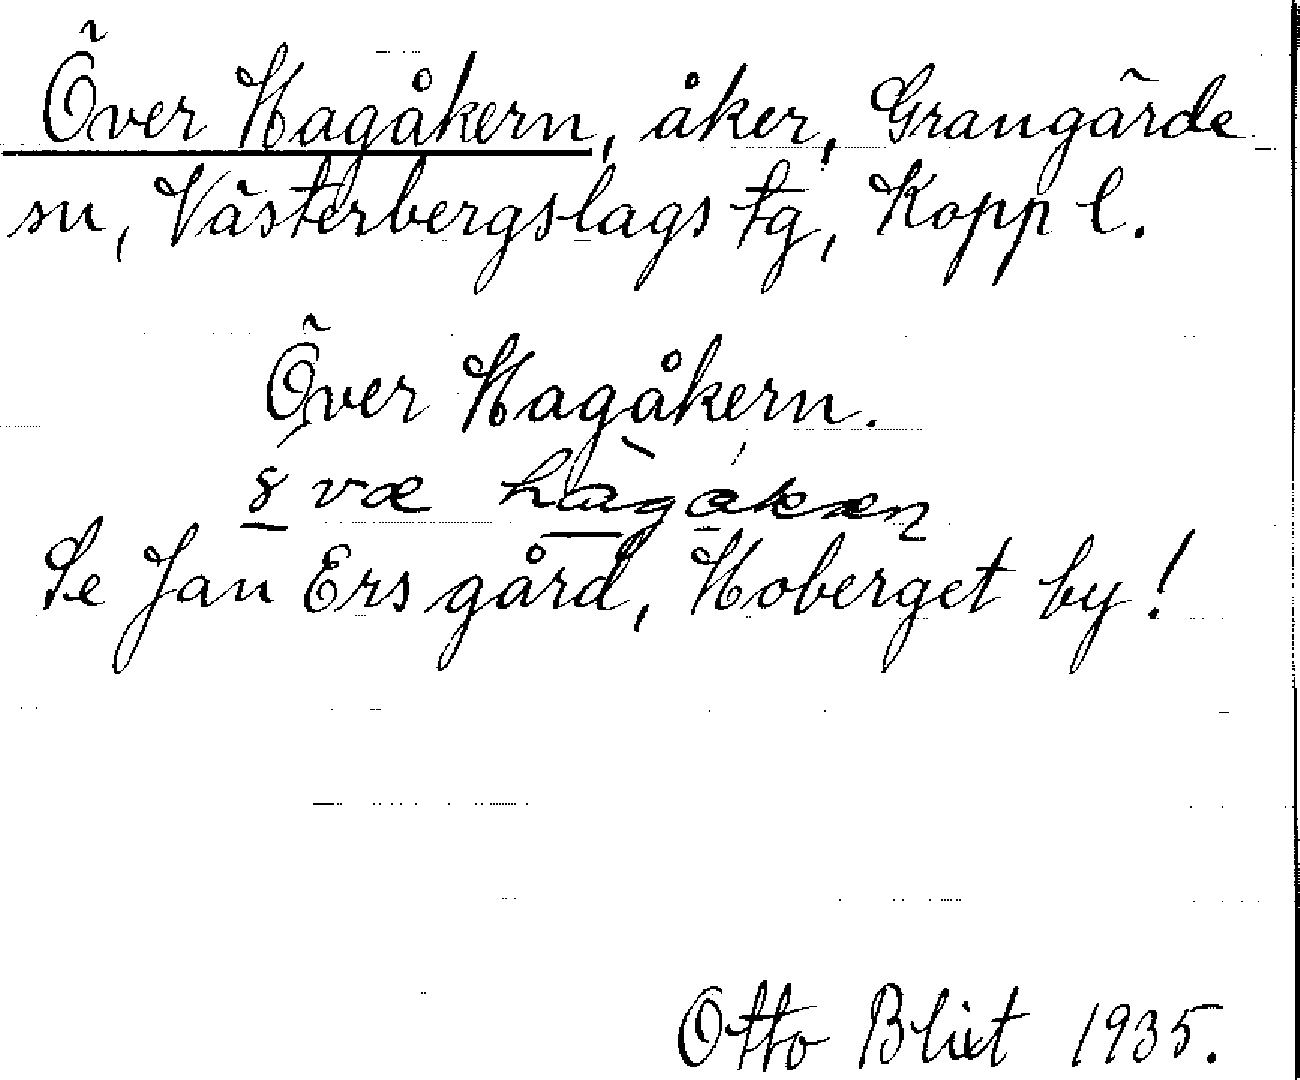 Över Hagåkern, åker, Grangärde
sn, Västerbergslags tg, Kopp l.
Över Hagåkern.
Se Jan Ers gård, Hoberget by!
Otto Blixt 1935.